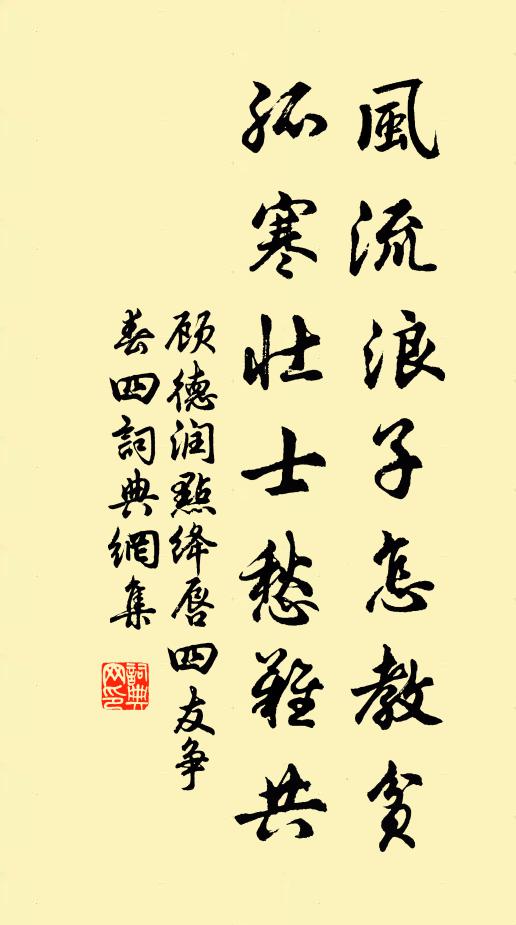 風流浪子怎教貧
孤寒壯士愁難共
顾德润點绛唇四友争
春四詞典網集
詞典网印